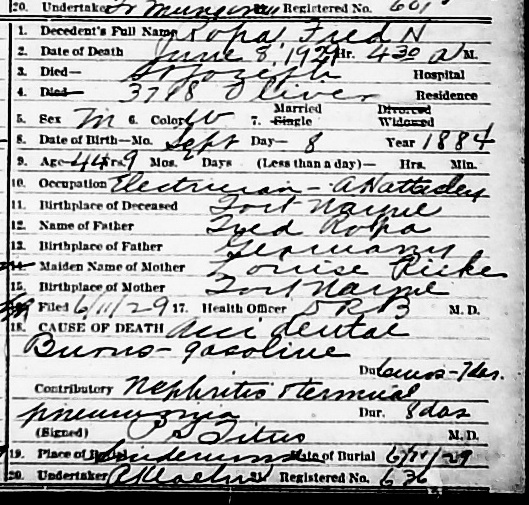 20. Undertaker Registered No. 601
1. Decedent's Full Name Ropa, Fred N
2. Date of Death June 8, 1929 Hr. 4 30 a M.
3. Died— St Joseph Hospital
4. Died— 3718 Oliver Residence
5. Sex M 6. Color W 7. Married Single Divorced Widowed
8. Date of Birth—Mo. Sept Day— 8 Year 1884
9. Age—44 Yrs. 9 Mos. Days (Less than a day)— Hrs. Min.
10. Occupation Electrician —
11. Birthplace of Deceased Fort Wayne
12. Name of Father Fred Ropa
13. Birthplace of Father Germany
14. Maiden Name of Mother Louise Ricke
15. Birthplace of Mother Fort Wayne
16. Filed 6/11/29 17. Health Officer M. D.
18. CAUSE OF DEATH Accidental
Burns - gasoline
Du. burns - 7 das.
Contributory Nephritis & terminal
pneumonia Dur. 8 das
(Signed) P S Titus M. D.
19. Place of Burial Lindenwood Date of Burial 6/11/29
20. Undertaker 21. Registered No. 636